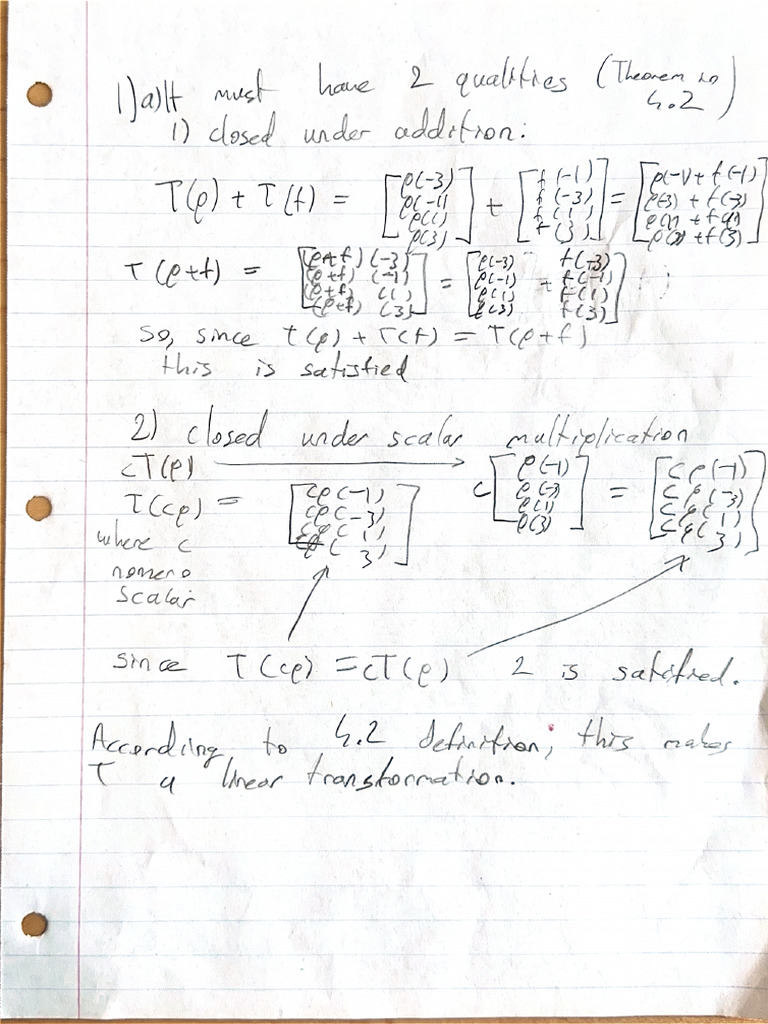 1) a) It must have 2 qualities (Theorem in 4.2)
1) closed under addition:
T(p) + T(f) = [p(-3) p(-1) p(1) p(3)] + [f(-1) f(-3) f(1) f(3)] = [p(-1) + f(-1) p(-3) + f(-3) p(1) + f(1) p(3) + f(3)]
T(p+f) = [(p+f)(-3) (p+f)(-1) (p+f)(1) (p+f)(3)] = [p(-3) + f(-3) p(-1) + f(-1) p(1) + f(1) p(3) + f(3)]
So, since T(p) + T(f) = T(p+f)
this is satisfied
2) closed under scalar multiplication
cT(p) → c[p(-1) p(-3) p(1) p(3)] = [cp(-1) cp(-3) cp(1) cp(3)]
T(cp) = [cp(-1) cp(-3) cp(1) cp(3)]
where c
nonzero
scalar
since T(cp) = cT(p) 2 is satisfied.
According to 4.2 definition, this makes
T a linear transformation.